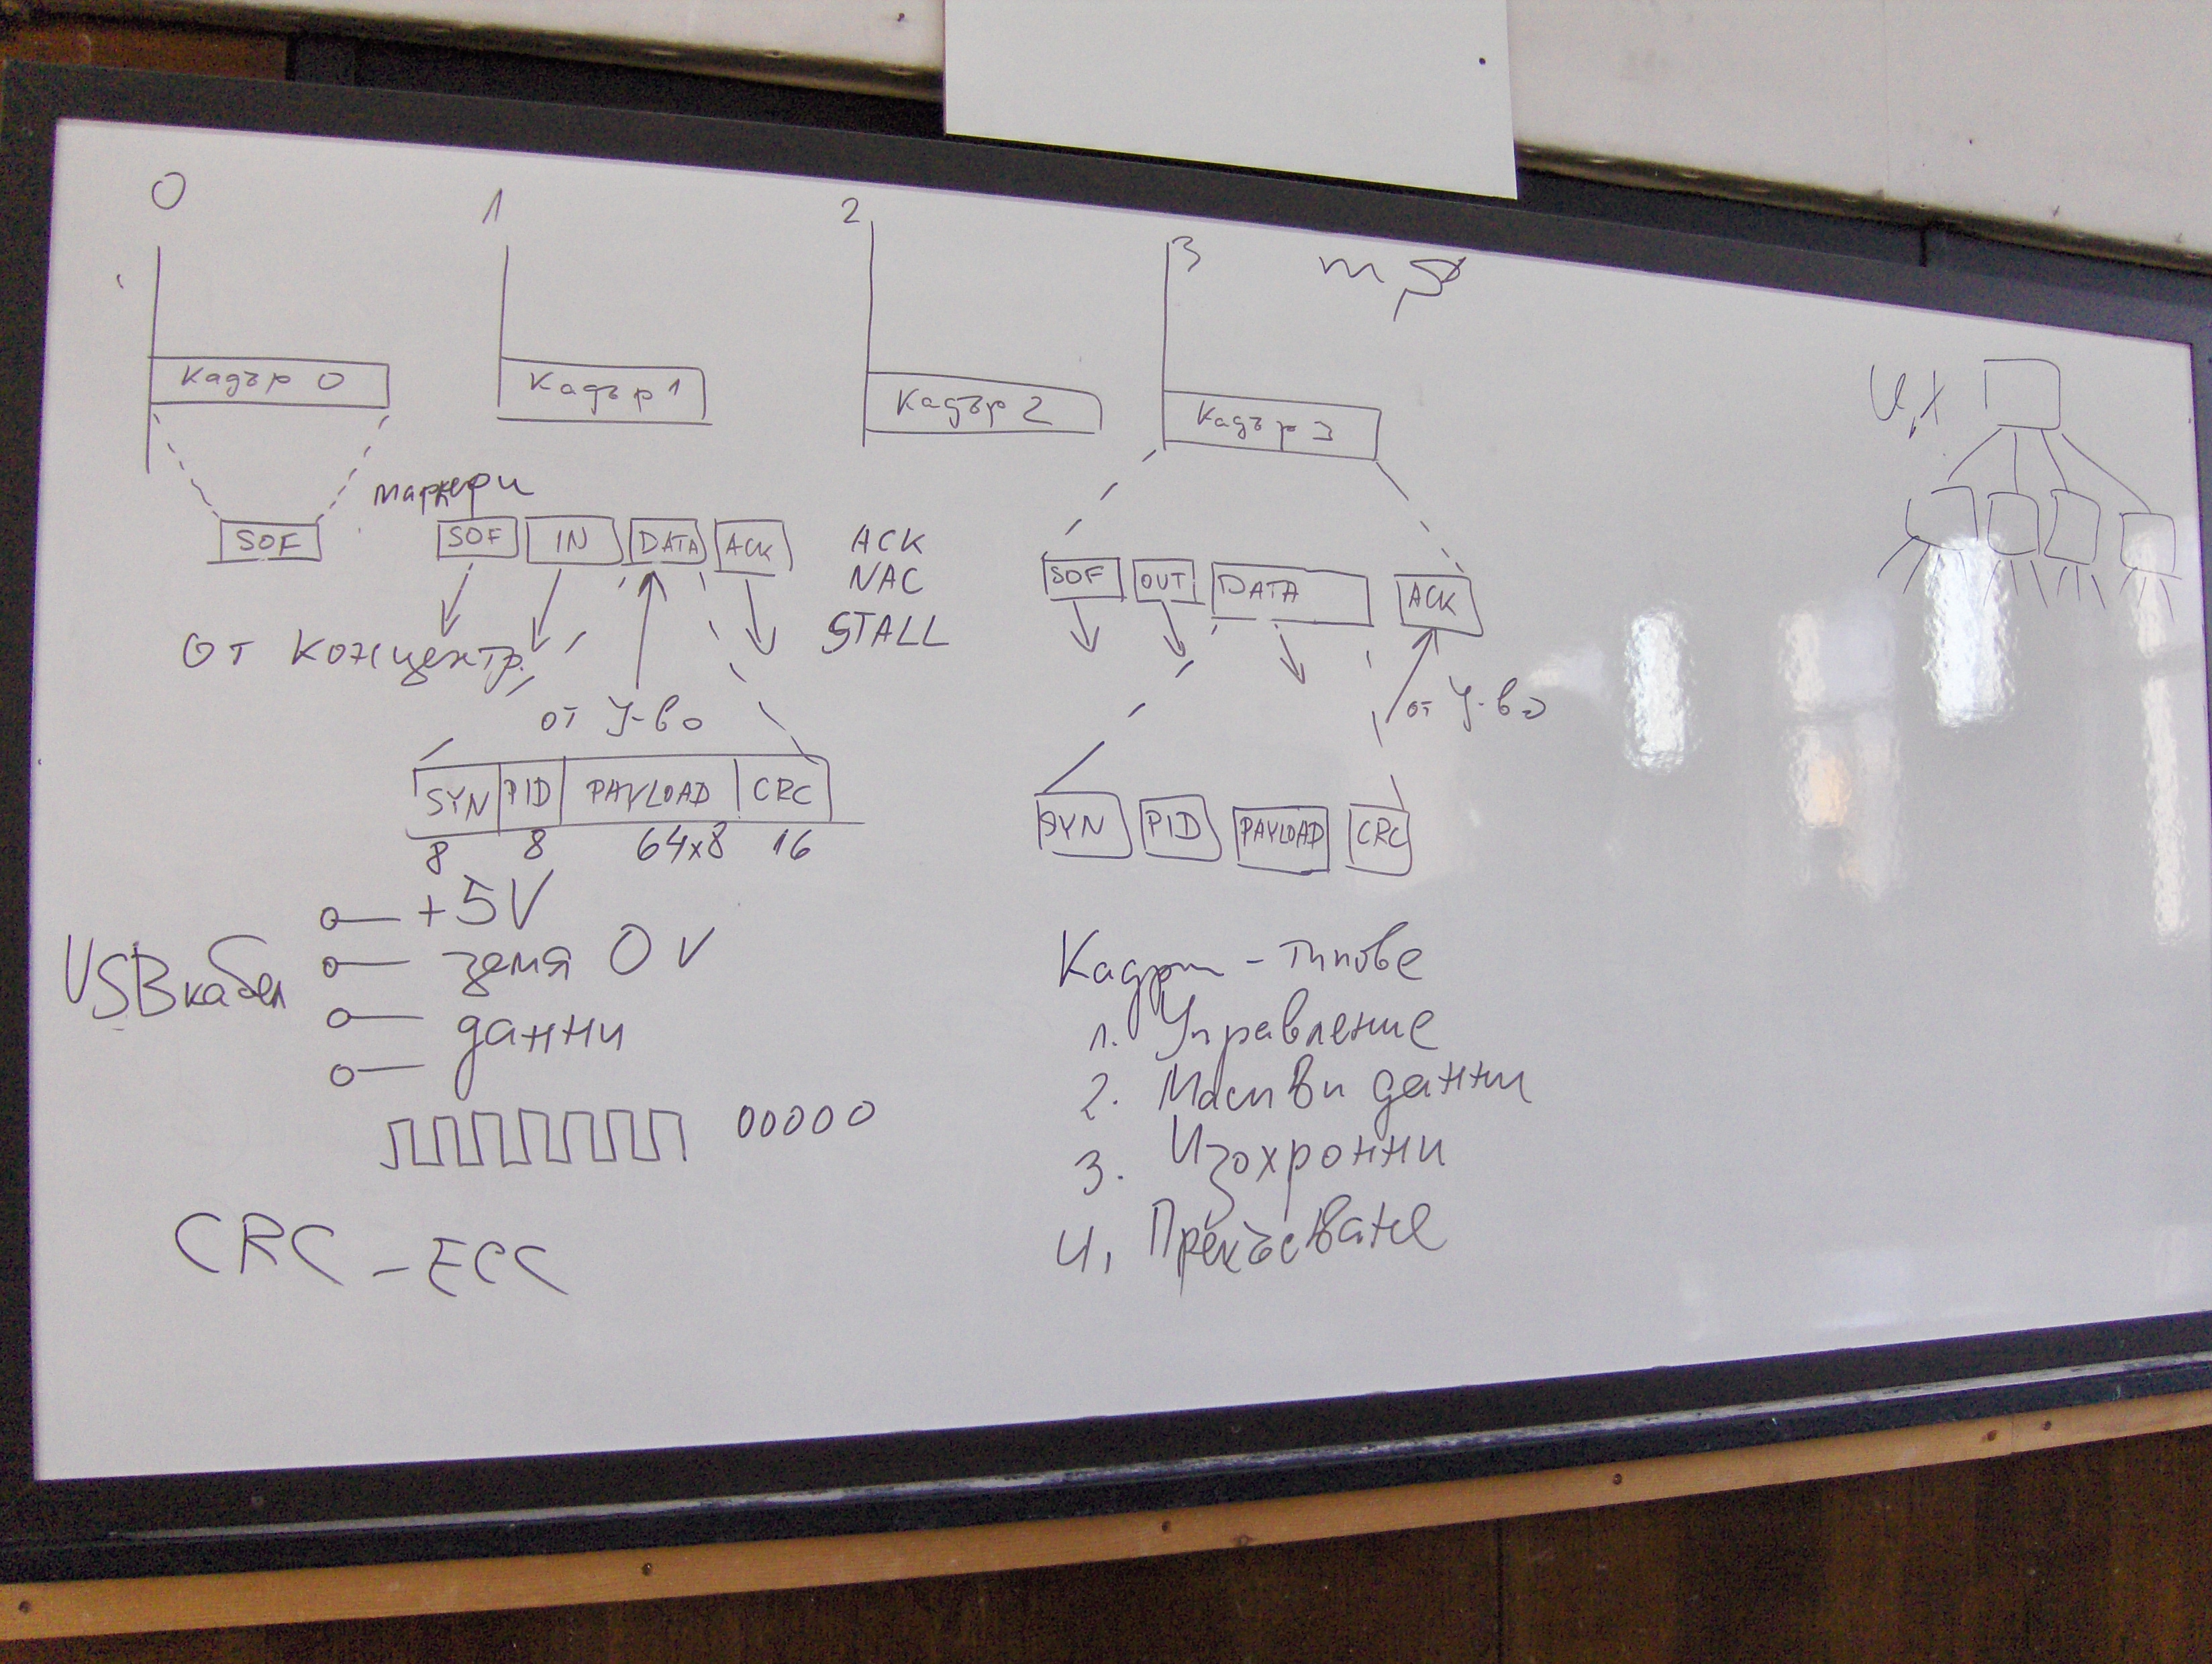 0 1 2 3
Кадър 0 Кадър 1 Кадър 2 Кадър 3
маркери
SOF SOF IN DATA ACK
ACK
NAC
STALL
SOF OUT DATA ACK
от концентр.
от У-во
от У-во
SYN PID PAYLOAD CRC
8 8 64x8 16
SYN PID PAYLOAD CRC
USB кабел
+5V
земя 0 V
данни
00000
CRC - ECC
Кадри - типове
1. Управление
2. Масиви данни
3. Изохронни
4. Прекъсване